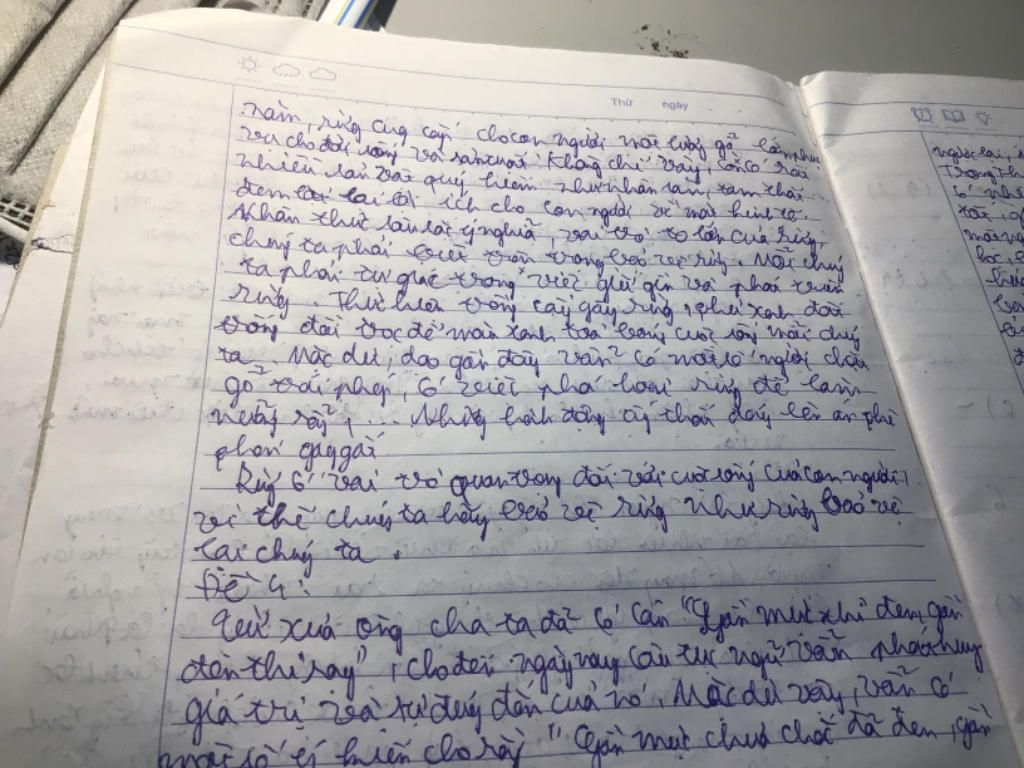 Thứ ngày
năm, rừng cug cấp cho con người một lượng gỗ lớn phục
vụ cho đời sống và sản xuất. Không chỉ vậy, còn có rất
nhiều sản vật quý hiếm như nhân sâm, tam thất
đem lại lợi ích cho con người về mặt kinh tế.
Nhận thức sâu sắc ý nghĩa, vai trò to lớn của rừng,
chúng ta phải trong bảo vệ rừng. Mỗi chúng
ta phải tự giác trong việc giữ gìn và phát triển
rừng. Thực hiện trồng cây gây rừng, phủ xanh đất
trống đồi trọc để màu xanh toả bóng cuộc sống mỗi chúng
ta. Mặc dù, dạo gần đây vẫn có một số người chặt
gỗ trái phép, có việc phá hoại rừng để làm
nương rẫy, ... Những hành động ấy thật đáng lên án phê
phán gay gắt
Rừng có vai trò quan trọng đối với cuộc sống của con người,
vì thế chúng ta hãy bảo vệ rừng như rừng bảo vệ
lại chúng ta.
Đề 4:
Từ xưa ông cha ta đã có câu "Gần mực thì đen, gần
đèn thì rạng", cho đến ngày nay câu tục ngữ vẫn phát huy
giá trị và sự đúng đắn của nó. Mặc dù vậy, vẫn có
một số ý kiến cho rằng "Gần mực chưa chắc đã đen, gần
ngược lại,
Trong th
có nh